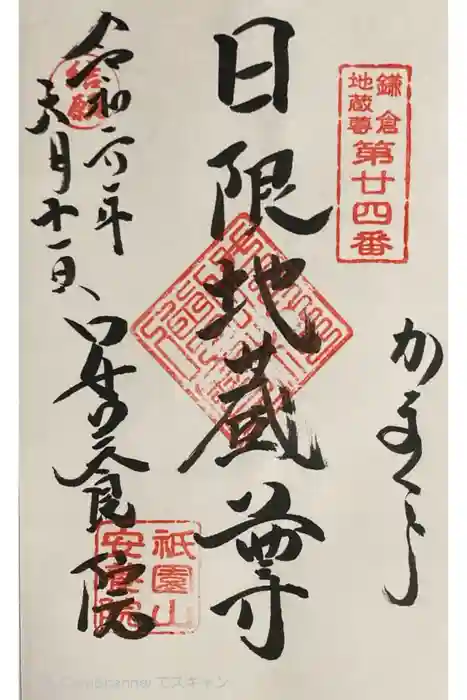 鎌倉
地蔵尊
第廿四番
かまくら
日限地蔵尊
結願
令和六年
天月十一日、安養院
祇園山
安養院
CamScanner でスキャン